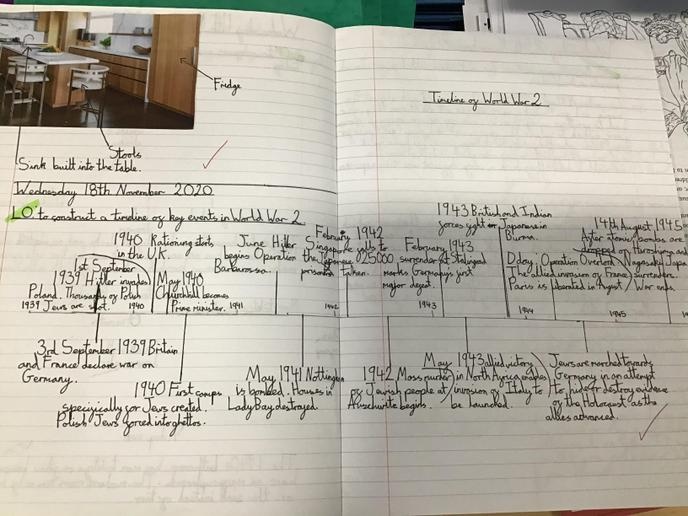 Fridge
Stools
Sink built into the table.
Wednesday 18th November 2020
LO: to construct a timeline of key events in World War 2
1940 Rationing starts
in the U.K.
1st September
1939 Hitler invades
Poland. Thousands of Polish
1939 Jews are shot. 1940
May 1940
Churchill becomes
Prime minister. 1941
June Hitler
begins Operation
Barbarossa
3rd September 1939 Britain
and France declare war on
Germany.
1940 First camps
specifically for Jews created.
Polish Jews forced into ghettos.
May 1941 Nottingham
is bombed. Houses in
Lady Bay destroyed.
Timeline of World War 2
February 1942
Singapore falls to
the Japanese 25000
prisoners taken.
1942
February 1943
surrender at Stalingrad
marks Germanys first
major defeat.
1943
1943 British and Indian
forces fight Japanese in
Burma.
D day: Operation Overlord
The allied invasion of France
Paris is liberated in August
1944
14th August 1945
After atomic bombs are
dropped on Hiroshima and
Nagasaki Japan
surrenders.
War ends.
1945
1942 Mass murder
of Jewish people at
Auschwitz begins.
May 1943 allied victory
in North Africa enables
invasion of Italy to
be launched.
Jews are marched towards
Germany in an attempt
to destroy evidence
of the Holocaust as the
allies advanced.